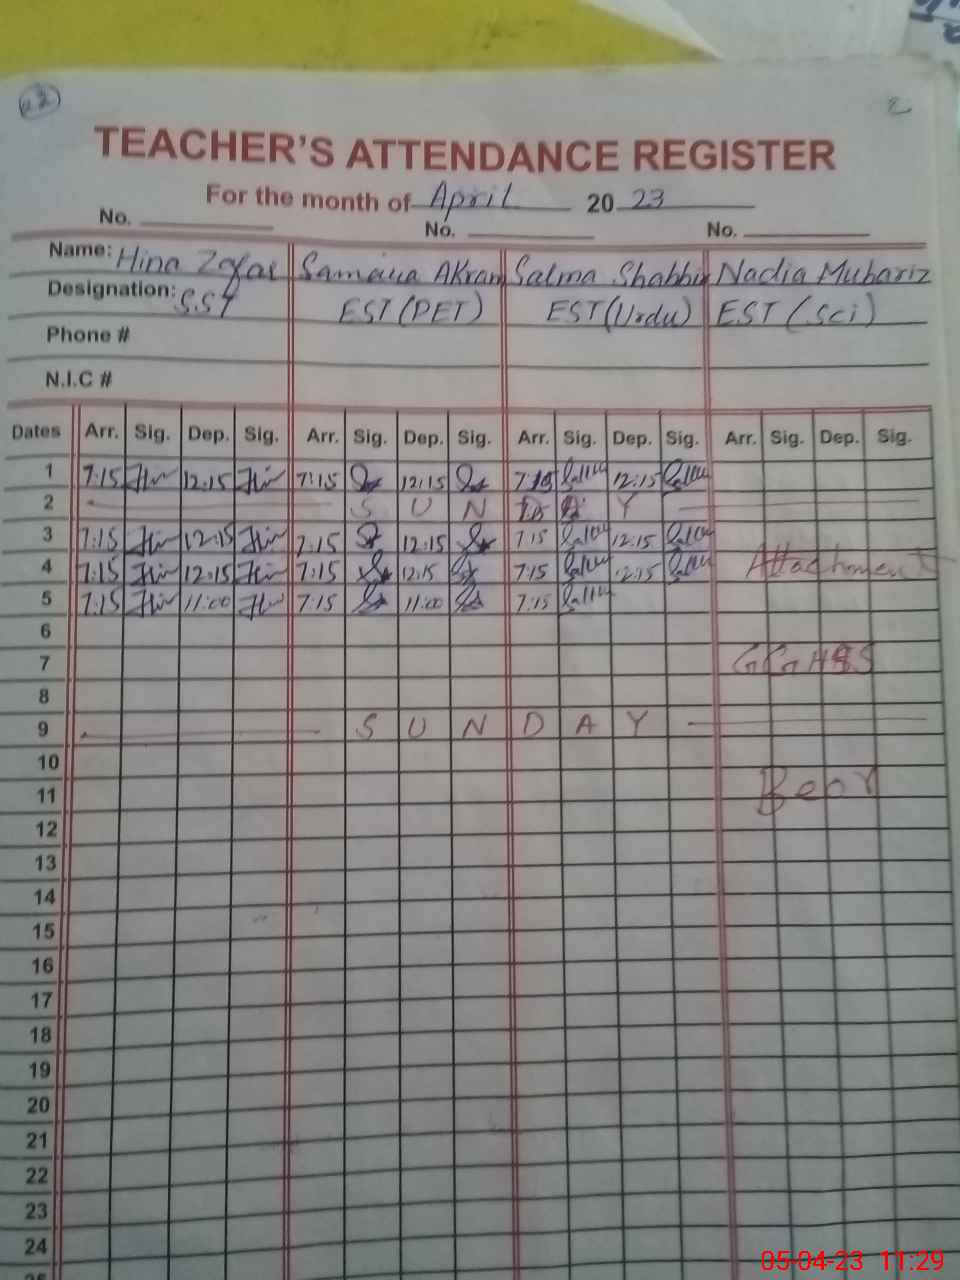 2
TEACHER'S ATTENDANCE REGISTER
For the month of April 20 23
No. No. No.
Name: Hina Zafar Samaua Akram Salma Shabbir Nadia Mubariz
Designation: S.S.T EST (PET) EST (Urdu) EST (Sci)
Phone #
N.I.C #
Dates Arr. Sig. Dep. Sig. Arr. Sig. Dep. Sig. Arr. Sig. Dep. Sig. Arr. Sig. Dep. Sig.
1 7:15 12:15 7:15 12:15 7:15 12:15
2 S U N D A Y
3 7:15 12:15 7:15 12:15 7:15 12:15
4 7:15 12:15 7:15 12:15 7:15 12:15 Attachment
5 7:15 11:00 7:15 11:00 7:15
6
7 GGHSS
8
9 S U N D A Y
10
11 Beor
12
13
14
15
16
17
18
19
20
21
22
23
24
05-04-23 11:29